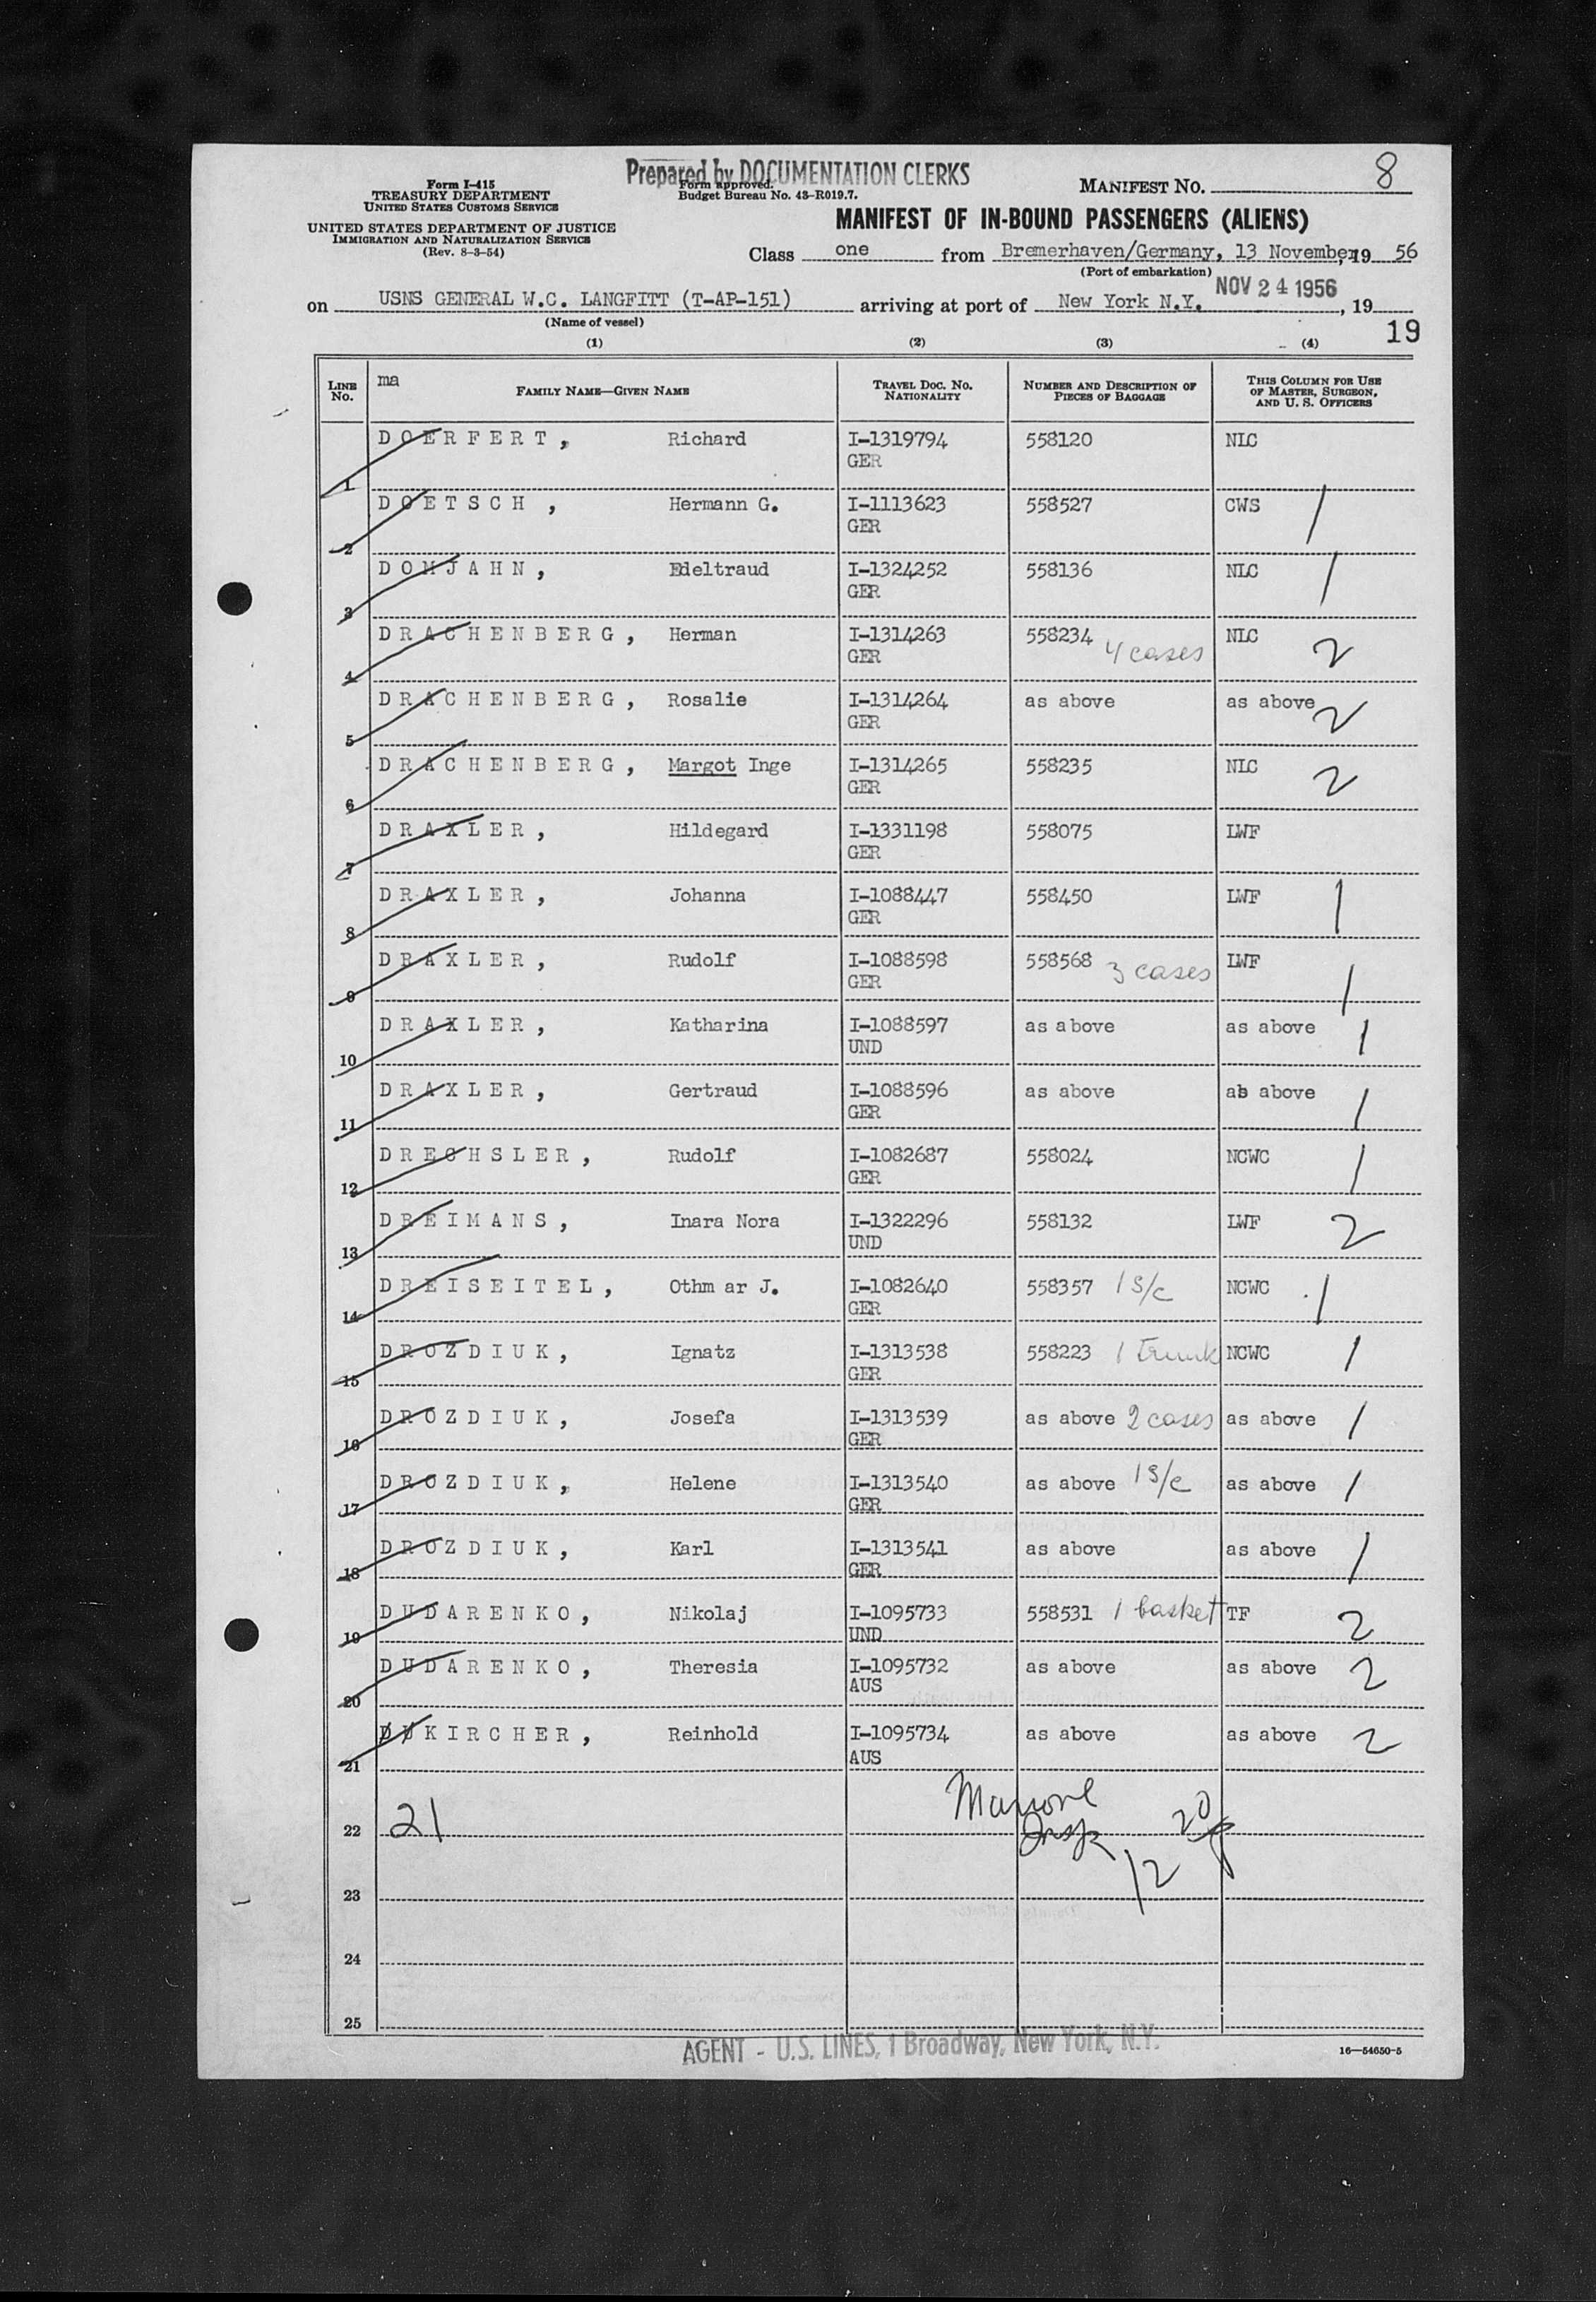 Prepared by DOCUMENTATION CLERKS
Form I-415
TREASURY DEPARTMENT
UNITED STATES CUSTOMS SERVICE
UNITED STATES DEPARTMENT OF JUSTICE
IMMIGRATION AND NATURALIZATION SERVICE
(Rev. 8-3-54)
Form approved.
Budget Bureau No. 43-R019.7.
MANIFEST NO. 8
MANIFEST OF IN-BOUND PASSENGERS (ALIENS)
Class one from Bremerhaven/Germany, 13 November, 19 56
(Port of embarkation)
NOV 24 1956
on USNS GENERAL W.C. LANGFITT (T-AP-151) arriving at port of New York N.Y. , 19
(Name of vessel)
19
(1) (2) (3) (4)
LINE No. ma FAMILY NAME—GIVEN NAME TRAVEL DOC. NO. NATIONALITY NUMBER AND DESCRIPTION OF PIECES OF BAGGAGE THIS COLUMN FOR USE OF MASTER, SURGEON, AND U. S. OFFICERS
1 DOERFERT, Richard I-1319794 GER 558120 NLC
2 DOETSCH, Hermann G. I-1113623 GER 558527 CWS 1
3 DOMJAHN, Edeltraud I-1324252 GER 558136 NLC 1
4 DRACHENBERG, Herman I-1314263 GER 558234 4 cases NLC 2
5 DRACHENBERG, Rosalie I-1314264 GER as above as above 2
6 DRACHENBERG, Margot Inge I-1314265 GER 558235 NLC 2
7 DRAXLER, Hildegard I-1331198 GER 558075 LWF
8 DRAXLER, Johanna I-1088447 GER 558450 LWF 1
9 DRAXLER, Rudolf I-1088598 GER 558568 3 cases LWF 1
10 DRAXLER, Katharina I-1088597 UND as above as above 1
11 DRAXLER, Gertraud I-1088596 GER as above as above 1
12 DRECHSLER, Rudolf I-1082687 GER 558024 NCWC 1
13 DREIMANS, Inara Nora I-1322296 UND 558132 LWF 2
14 DREISEITEL, Othm ar J. I-1082640 GER 558357 1 s/c NCWC 1
15 DROZDIUK, Ignatz I-1313538 GER 558223 1 trunk NCWC 1
16 DROZDIUK, Josefa I-1313539 GER as above 2 cases as above 1
17 DROZDIUK, Helene I-1313540 GER as above 1 s/c as above 1
18 DROZDIUK, Karl I-1313541 GER as above as above 1
19 DUDARENKO, Nikolaj I-1095733 UND 558531 1 basket TF 2
20 DUDARENKO, Theresia I-1095732 AUS as above as above 2
21 DUKIRCHER, Reinhold I-1095734 AUS as above as above 2
22 21 20
12
23
24
25
AGENT - U.S. LINES, 1 Broadway, New York, N.Y.
16—54650-5